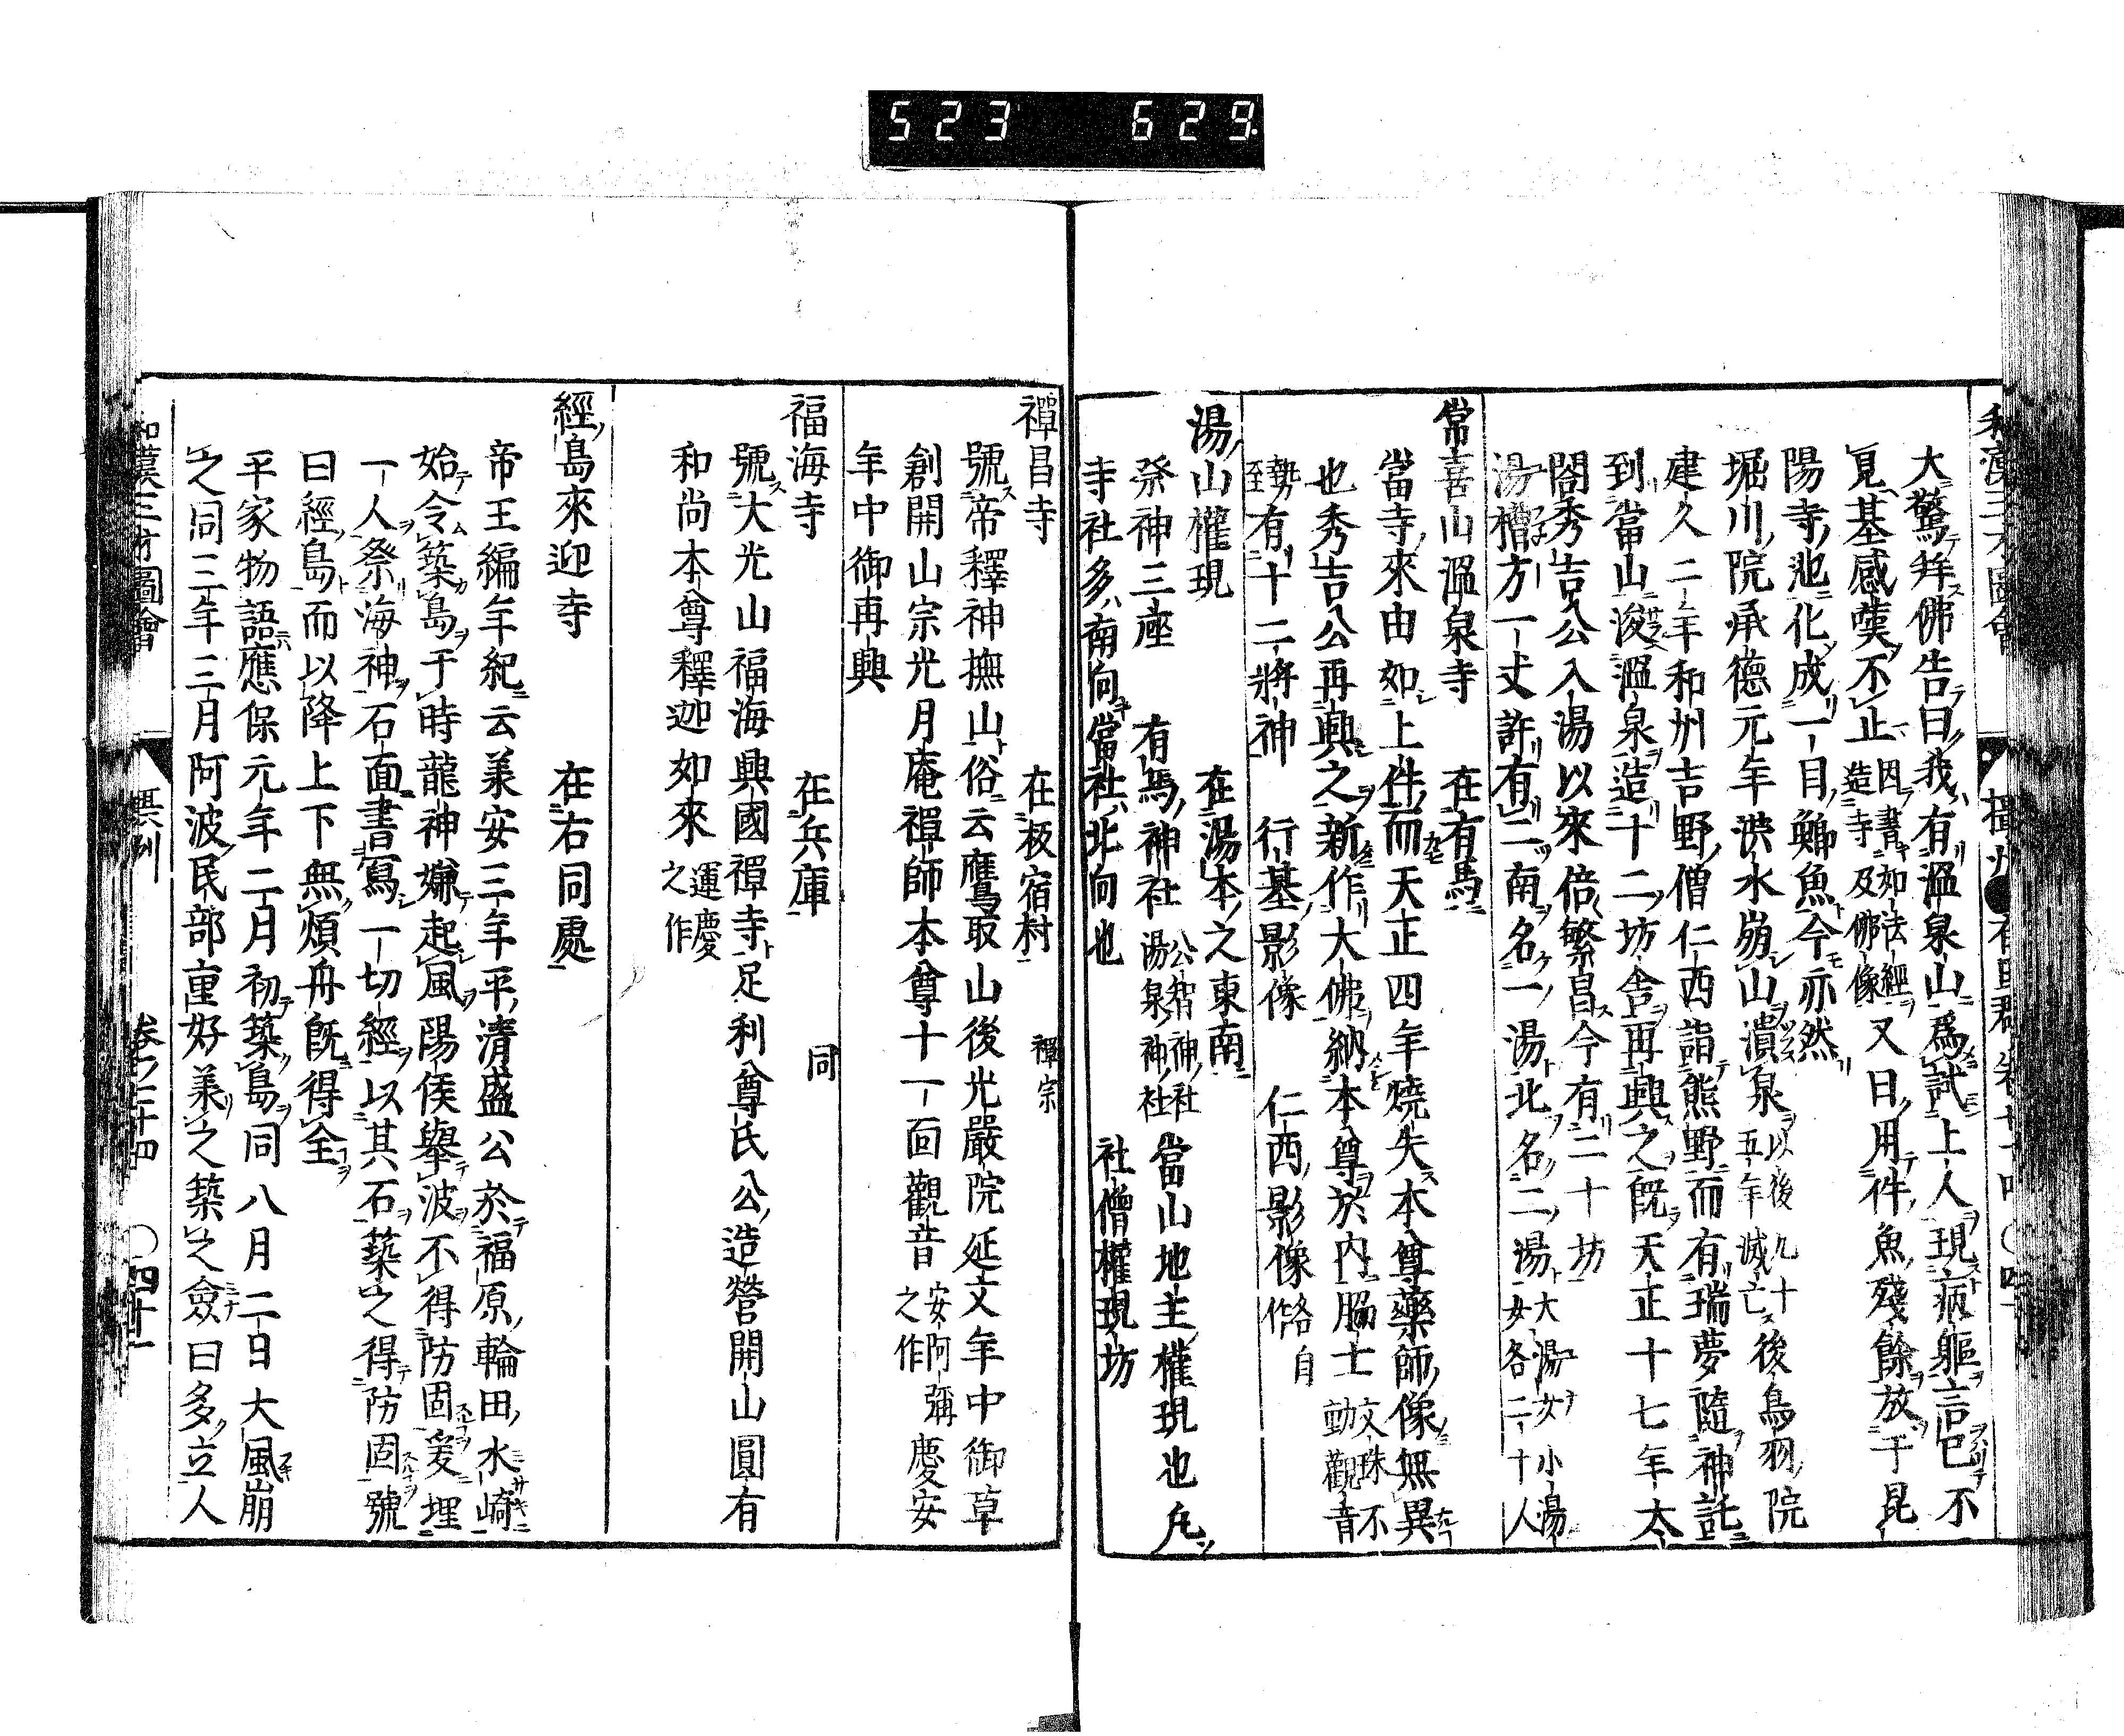 523 629
大驚拜佛告曰我有溫泉山爲試上人現病軀言已不
見基感嘆不止因書如法經造寺及佛像又曰用件魚殘餘放于昆
陽寺池化成一目鯽魚今亦然
堀川院承德元年洪水崩山潰泉以後九十五年滅亡後鳥羽院
建久二年和州吉野僧仁西詣熊野而有瑞夢隨神託
到當山浚溫泉造十二坊舍再興之既天正十七年太
閤秀吉公入湯以來倍繁昌今有二十坊
湯槽方一丈許有二南名一湯北名二湯大湯女小湯女各二十人
常喜山溫泉寺 在有馬
當寺來由如上件而天正四年燒失本尊藥師像無異
也秀吉公再興之新作大佛納本尊於內脇士文珠不動觀音
勢至有十二將神 行基影像 仁西影像各自作
湯山權現 在湯本之東南
祭神三座 有馬神社 公智神社湯泉神社 當山地主權現也凡
寺社多南向當社北向也 社僧權現坊
禪昌寺 在板宿村 禪宗
號帝釋神撫山俗云鷹取山後光嚴院延文年中御草
創開山宗光月庵禪師本尊十一面觀音安阿彌慶安之作
年中御再興
福海寺 在兵庫 同
號大光山福海興國禪寺足利尊氏公造營開山圓有
和尚本尊釋迦如來運慶之作
經島來迎寺 在右同處
帝王編年紀云羕安三年平清盛公於福原輪田水崎
始令築島于時龍神嫌起風陽侯舉波不得防固爰埋
一人祭海神石面書寫一切經以其石築之得防固號
曰經島而以降上下無煩舟既得全
平家物語應保元年二月初築島同八月二日大風崩
之同三年三月阿波民部重好羕之築之僉曰多立人
和漢三才圖會 卷之七十四 〇四十一